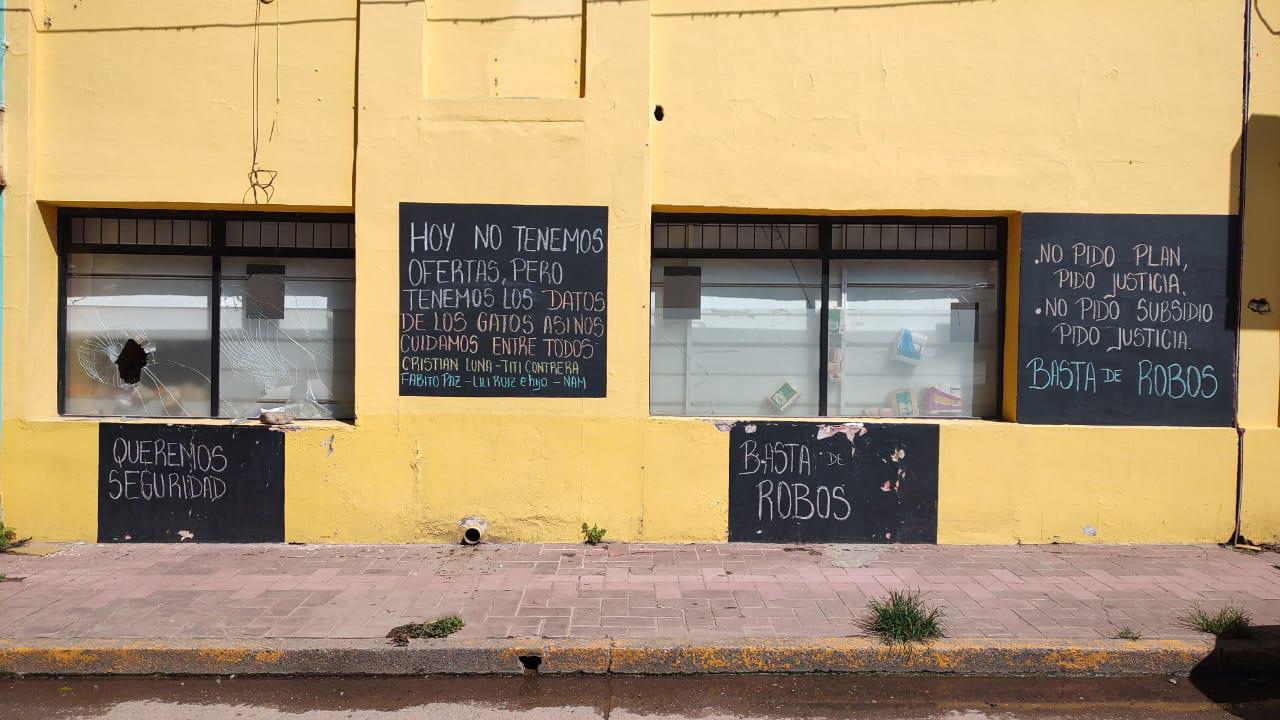 HOY NO TENEMOS
OFERTAS, PERO
TENEMOS LOS DATOS
DE LOS GATOS ASI NOS
CUIDAMOS ENTRE TODOS
CRISTIAN LUNA - TITI CONTRERA
FABITO PAZ - LILI RUIZ e hijo - NAM
.NO PIDO PLAN,
PIDO JUSTICIA.
.NO PIDO SUBSIDIO
PIDO JUSTICIA.
BASTA DE ROBOS
QUEREMOS
SEGURIDAD
BASTA DE
ROBOS